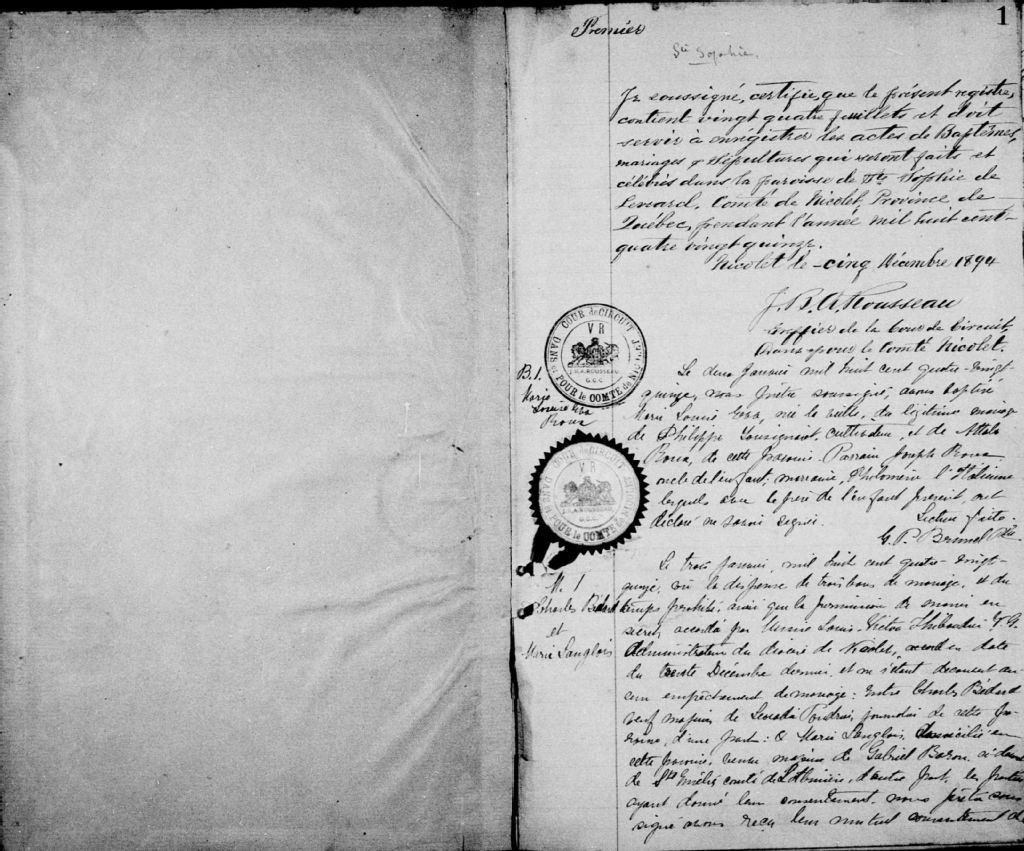 Premier
1
Ste Sophie.
Je soussigné, certifie, que le présent registre,
contient vingt quatre feuillets et doit
servir à enrégistrer les actes de Baptêmes,
mariages & Sépultures qui seront faits et
célébrés dans la paroisse de Ste Sophie de
Levrard, Comté de Nicolet, Province de
Québec, pendant l'année mil huit cent-
quatre vingt quinze.
Nicolet le cinq Décembre 1894
J. B. A. Rousseau
Greffier de la Cour de Circuit,
Dans & pour le Comté Nicolet.
COUR de CIRCUIT
DANS et POUR le COMTE de NICOLET
VR
J.B.A. ROUSSEAU
G.C.C.
B. 1.
Marie
Louise
Le deux Janvier mil huit cent quatre-vingt-
quinze, nous Prêtre soussigné, avons baptisé
Marie Louise née la veille, du légitime mariage
de Philippe Tousignant, cultivateur, et de
de cette paroisse. Parrain Joseph
oncle de l'enfant; marraine, Philomène
lesquels avec le père de l'enfant présent, ont
déclaré ne savoir signer. Lecture faite.
G. P. Brunel Ptre
COUR de CIRCUIT
DANS et POUR le COMTE de NICOLET
VR
J.B.A. ROUSSEAU
G.C.C.
M. 1
Charles Bédard
et
Marie Langlois
Le trois Janvier, mil huit cent quatre-vingt-
quinze, vu la dispense de trois bans de mariage, et du
temps prohibé, ainsi que la permission de marier en
secret, accordée par Louis-Victor Thibaudier V.G.
Administrateur du diocèse de Nicolet, en date
du trente Décembre dernier, et ne s'étant découvert au-
cun empêchement de mariage: Entre Charles Bédard
veuf majeur de journalier de cette Pa-
roisse, d'une part: & Marie Langlois, domiciliée en
cette paroisse, veuve majeure de Gabriel Baron
de Ste Emélie comté de Lotbinière, d'autre part, les parties
ayant donné leur consentement, nous prêtre sous
signé avons reçu leur mutuel consentement de